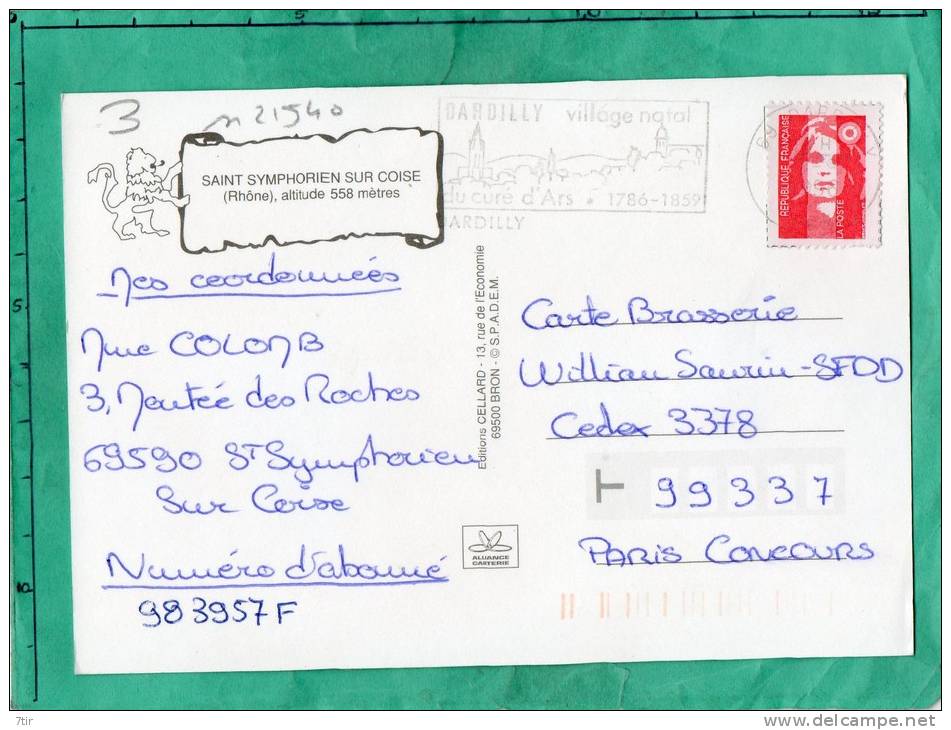 5
10
15
3
n 21540
DARDILLY village natal
du curé d'Ars • 1786-1859
DARDILLY
RÉPUBLIQUE FRANÇAISE
LA POSTE
SAINT SYMPHORIEN SUR COISE
(Rhône), altitude 558 mètres
Mes coordonnées
Mme COLOMB
3, Montée des Roches
69590 St Symphorien
Sur Coise
Numéro d'abonné
983957F
Editions CELLARD - 13, rue de l'Economie
69500 BRON - © S.P.A.D.E.M.
Carte Brasserie
William Saurin - SFDD
Cedex 3378
99337
PARIS CONCOURS
ALLIANCE
CARTERIE
5
10
7tir
www.delcampe.net